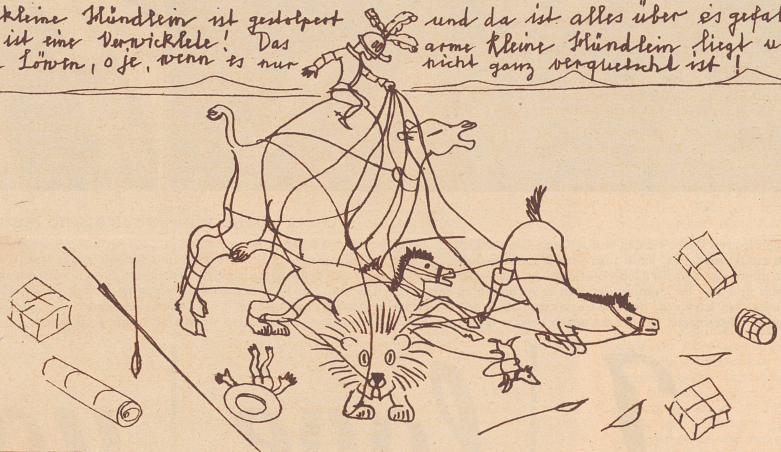 kleine Hündlein ist gestolpert und da ist alles über es gefa
ist eine Verwicklete! Das arme kleine Hündlein liegt u
Löwen, o je, wenn es nur nicht ganz verquetscht ist!